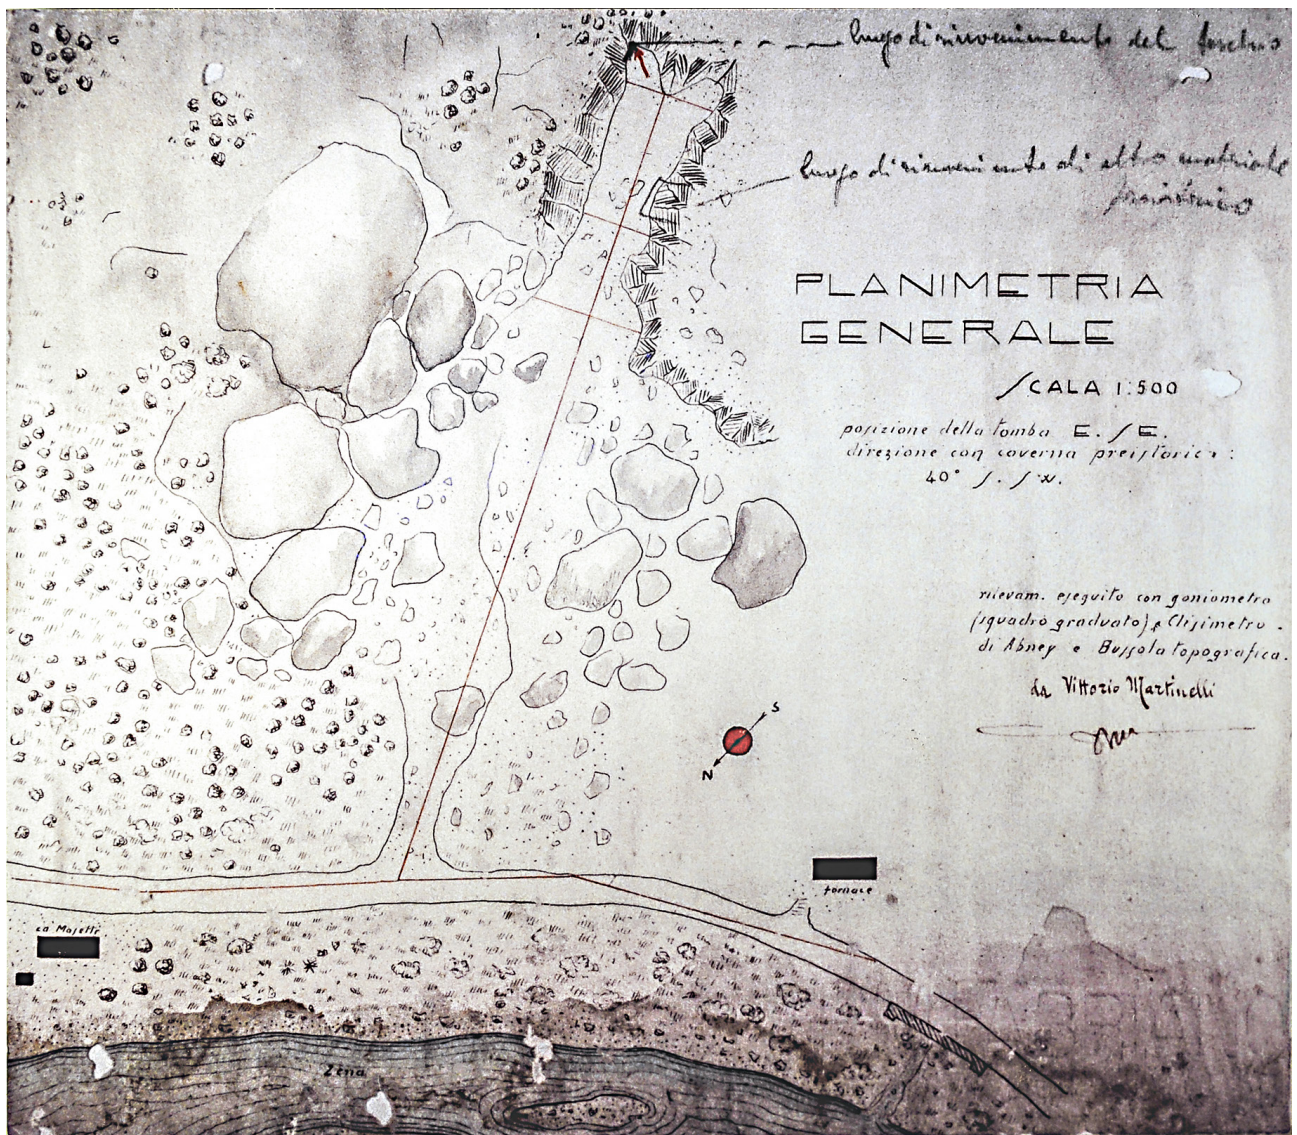 luogo di rinvenimento del teschio
luogo di rinvenimento di altro materiale
preistorico
PLANIMETRIA
GENERALE
SCALA 1:500
posizione della tomba E. SE.
direzione con caverna preistorica:
40° S. SW.
rilevam. eseguito con goniometro
(squadro graduato) e Clisimetro
di Abney e Bussola topografica.
da Vittorio Martinelli
S
N
fornace
ca Masetti
Zena